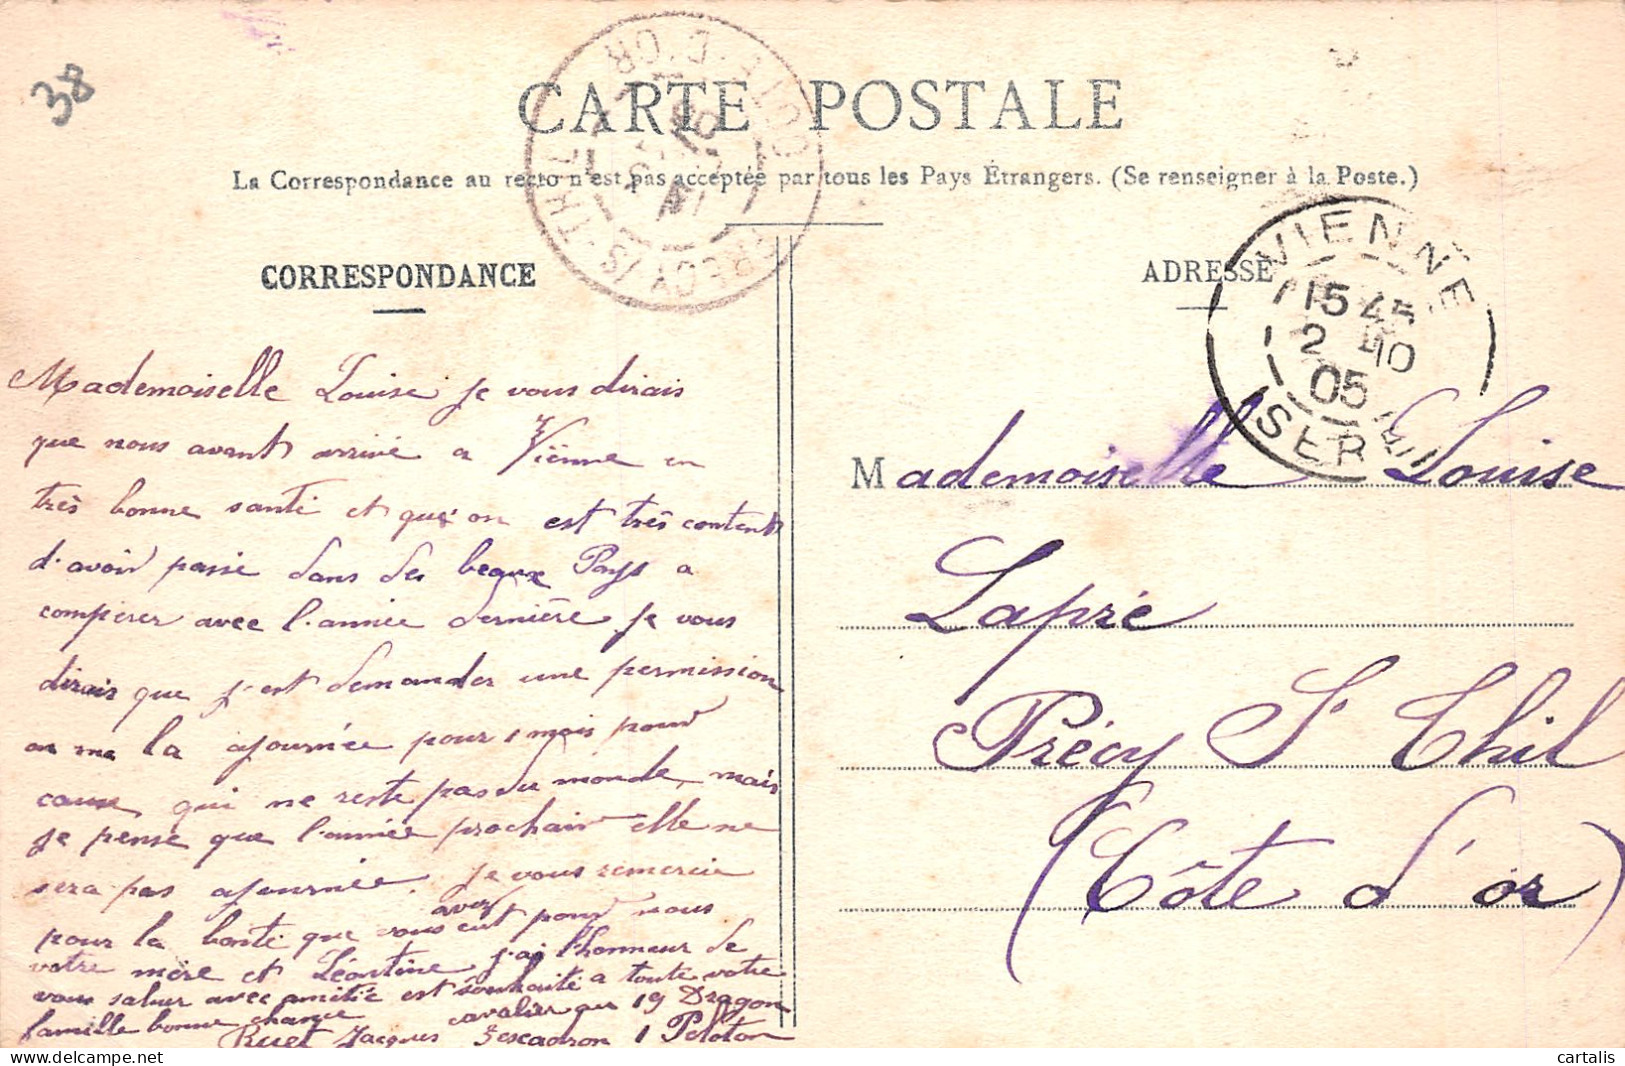 38
COTE-D'OR
CARTE POSTALE
La Correspondance au recto n'est pas acceptée par tous les Pays Étrangers. (Se renseigner à la Poste.)
CORRESPONDANCE
ADRESSE
VIENNE
15 45
2 10
05
ISERE
Mademoiselle Louise je vous dirais
que nous avant arrivé a Vienne en
très bonne santé et que on est très contents
d'avoir passé dans des beaux Pays a
comperer avec l'année dernière je vous
dirais que j'est demander une permission
on ma la ajournée pour 1 mois pour
cause qui ne reste pas du monde, mais
je pense que l'année prochain elle ne
sera pas ajournée. je vous remercie
pour la bonté que vous avez eut pour nous
votre mère et Léontine j'ai l'honneur de
vous saluer avec amitié est souhaité a toute votre
famille bonne chance cavalier au 19 Dragon
Ruet Jacques 3 escadron 1 Peloton
Mademoiselle Louise
Lapré
Précy St Thil
(Côte d'or)
cartalis